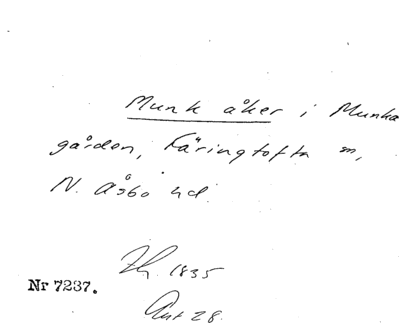 Munk åker i Munka
gården, Färingtofta m,
N. Åsbo hd.
Zh. 1835
Nr 7237.
Ant 28.